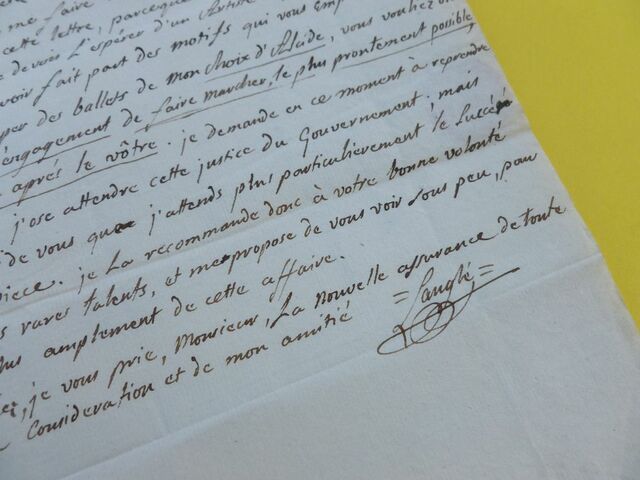 me faire
cette lettre, parceque
devrois L'espérer d'un Artiste
avoir fait part des motifs qui vous
per des ballets de mon choix d'Alcide, vous vouliez
engagement de faire marcher, le plus prontement possible,
après le vôtre. je demande en ce moment à reprendre
j'ose attendre cette justice du Gouvernement; mais
de vous que j'attends plus particulièrement le Succès
piece. je La recommande donc à votre bonne volonté
s rares talents, et me propose de vous voir sous peu, pour
plus amplement de cette affaire.
je vous prie, Monsieur, La nouvelle assurance de toute
Consideration et de mon amitié
= Langlé =